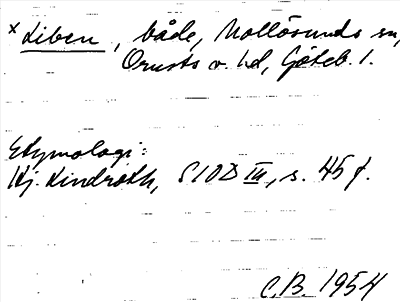 × Liben, både, Mollösunds sn,
Orusts v. hd, Göteb. l.
Etymologi:
Hj. Lindroth, SIOD III, s. 45 f.
C.B. 1954